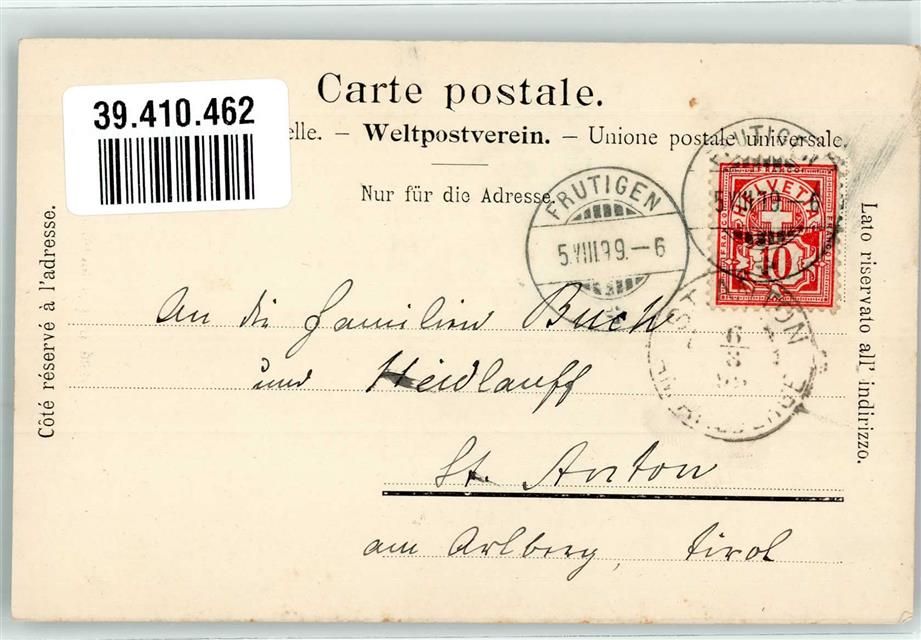 Carte postale.
39.410.462
elle. – Weltpostverein. – Unione postale universale.
Nur für die Adresse.
FRUTIGEN
5.VIII.99.–6
FRUTIGEN
5.VIII.99.–6
FRANCO
HELVETIA
10
FRANCO
FRANCO
Côté réservé à l'adresse.
Lato riservato all' indirizzo.
An die Familien Buch
und Heidlauff
St. Anton
am Arlberg, Tirol